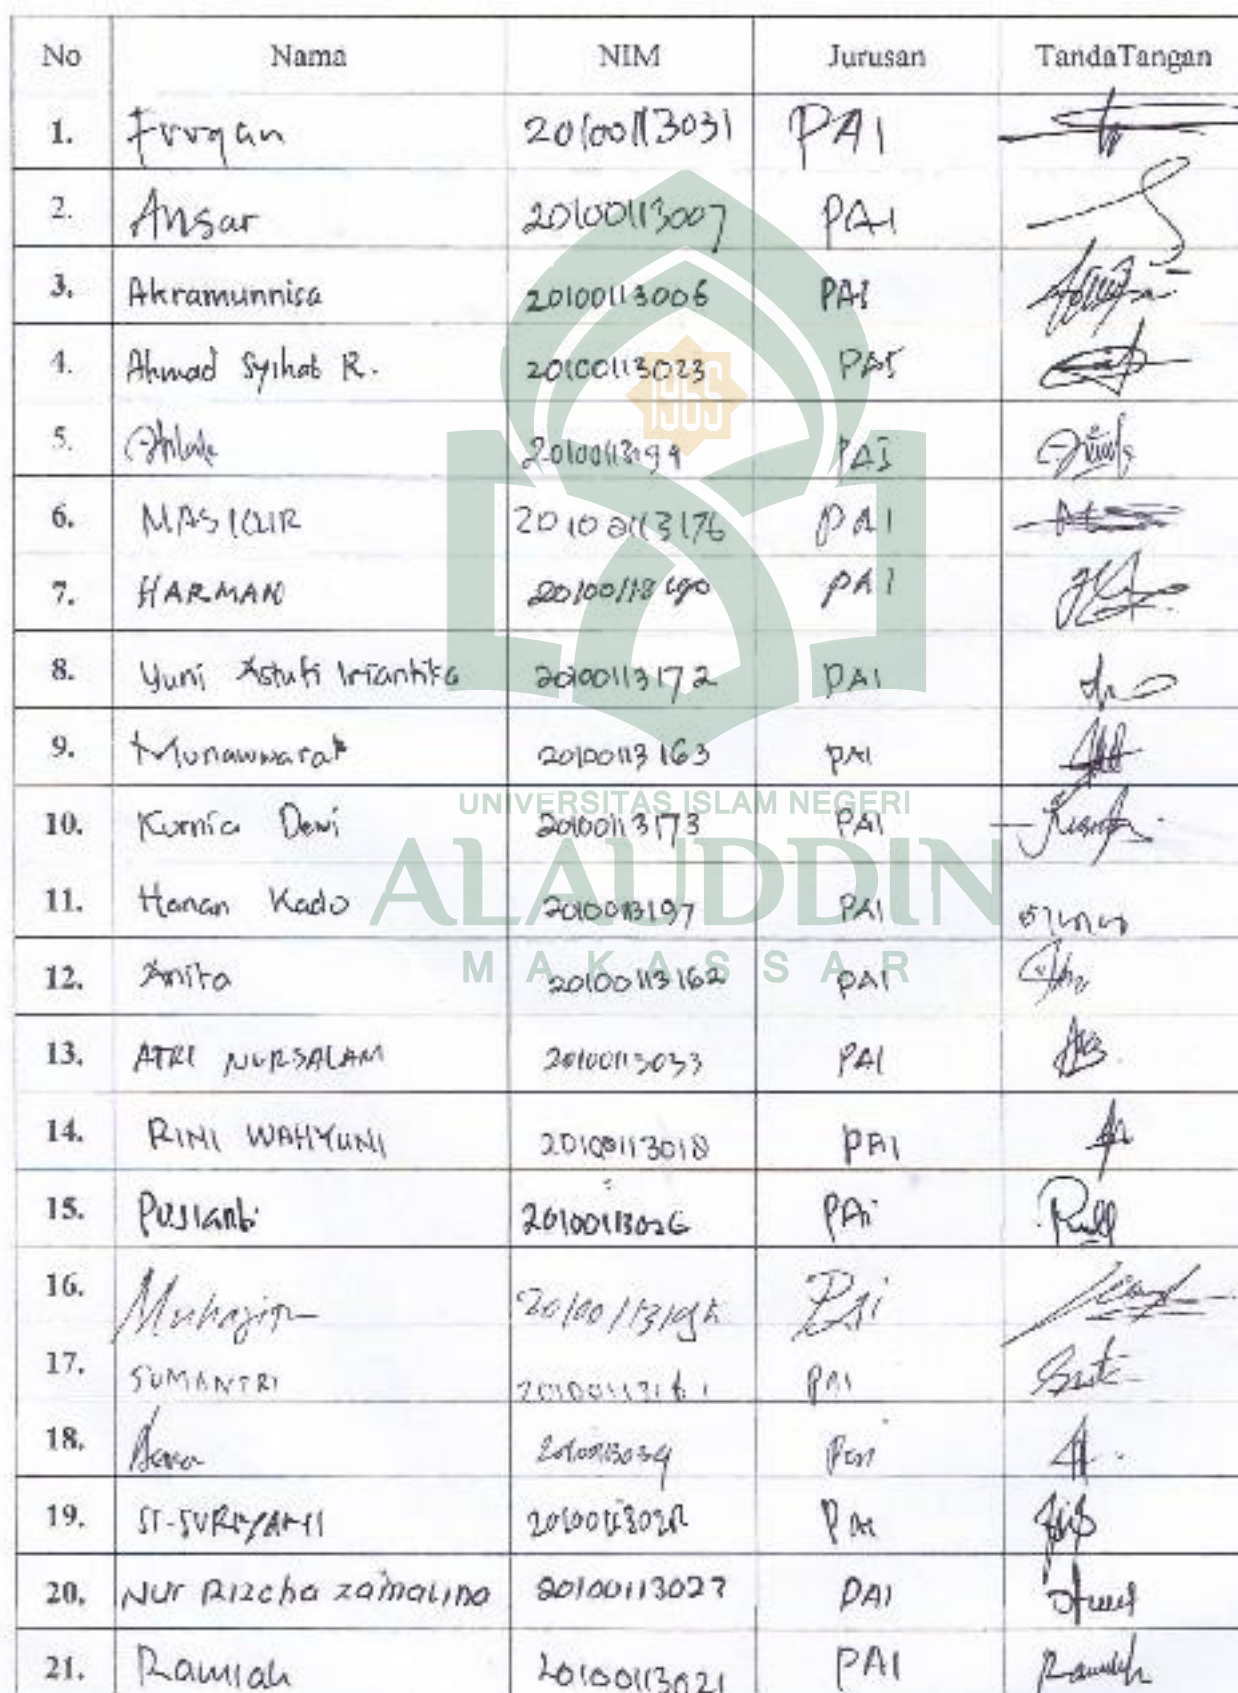 No Nama NIM Jurusan TandaTangan
1. Furqan 20100113031 PAI
2. Ansar 20100113007 PAI
3. Akramunnisa 20100113006 PAI
4. Ahmad Syihab R. 20100113023 PAI
5. PAI
6. MASKUR 20100113176 PAI
7. HARMAN PAI
8. Yuni Astuti Iriantika 20100113172 PAI
9. Munawwarah 20100113163 PAI
10. Kurnia Dewi 20100113173 PAI
11. Hanan Kado 20100113197 PAI
12. Anita 20100113162 PAI
13. ATRI NURSALAM 20100113033 PAI
14. RINI WAHYUNI 20100113018 PAI
15. Pusianti 20100113026 PAi
16. Muhajir PAi
17. SUMANTRI 20100113161 PAI
18.
19. ST-SURIYANTI PAI
20. Nur Rizcha zamalina 20100113027 PAI
21. Ramlah 20100113021 PAI Ramlah
1965
UNIVERSITAS ISLAM NEGERI
ALAUDDIN
MAKASSAR